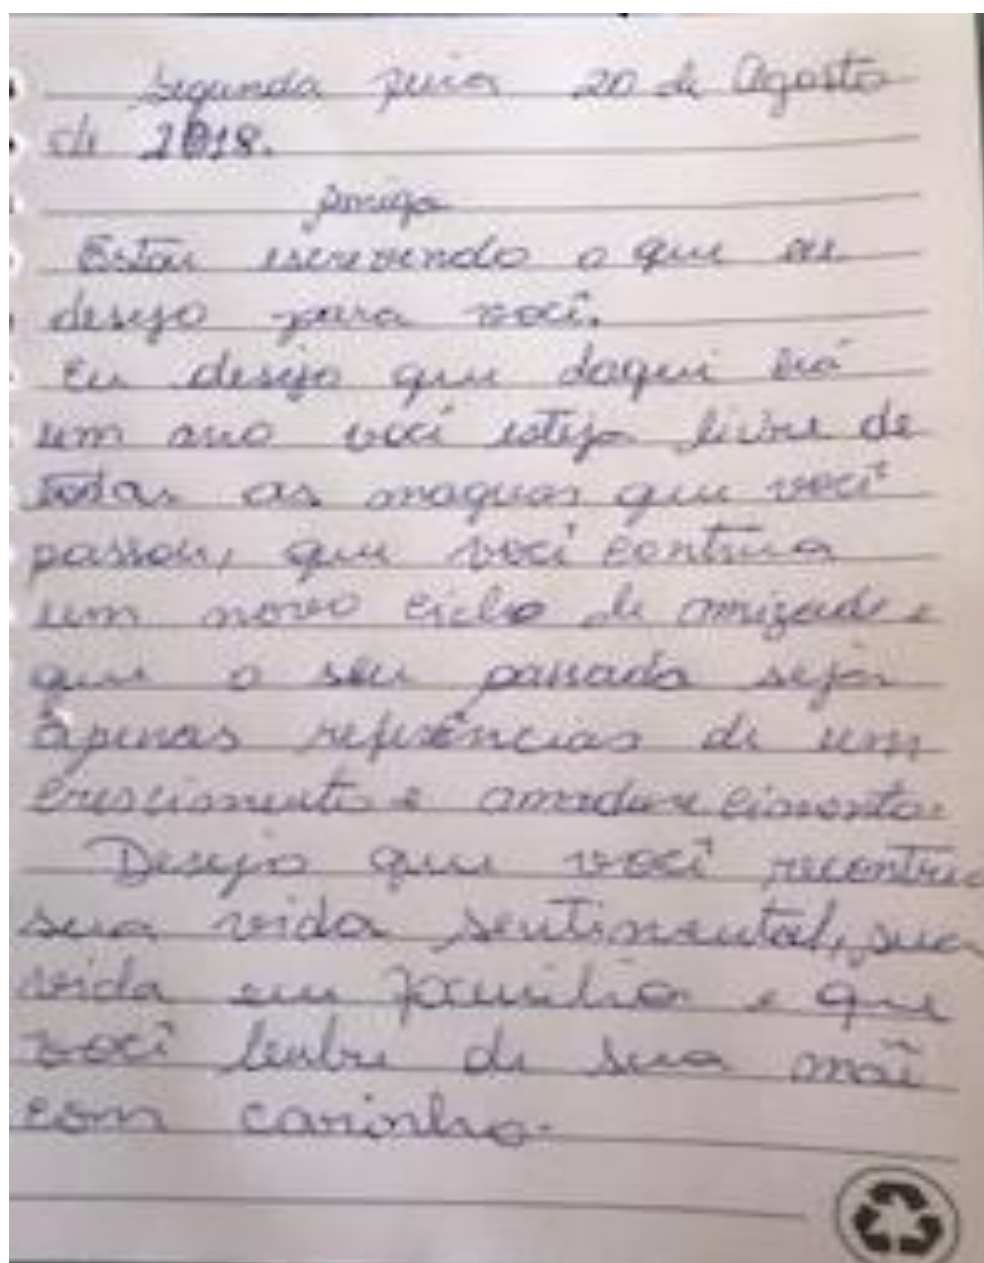 Segunda feira 20 de Agosto
de 2018.
Amiga
Estou escrevendo o que eu
desejo para você.
Eu desejo que daqui há
um ano você esteja livre de
todas as maguas que você
passou, que você contrua
um novo ciclo de amizade e
que o seu passado seja
apenas referências de um
crescimento e amadurecimento.
Desejo que você recontrua
sua vida sentimental, sua
vida em família e que
você lenbre de sua mãe
com carinho.